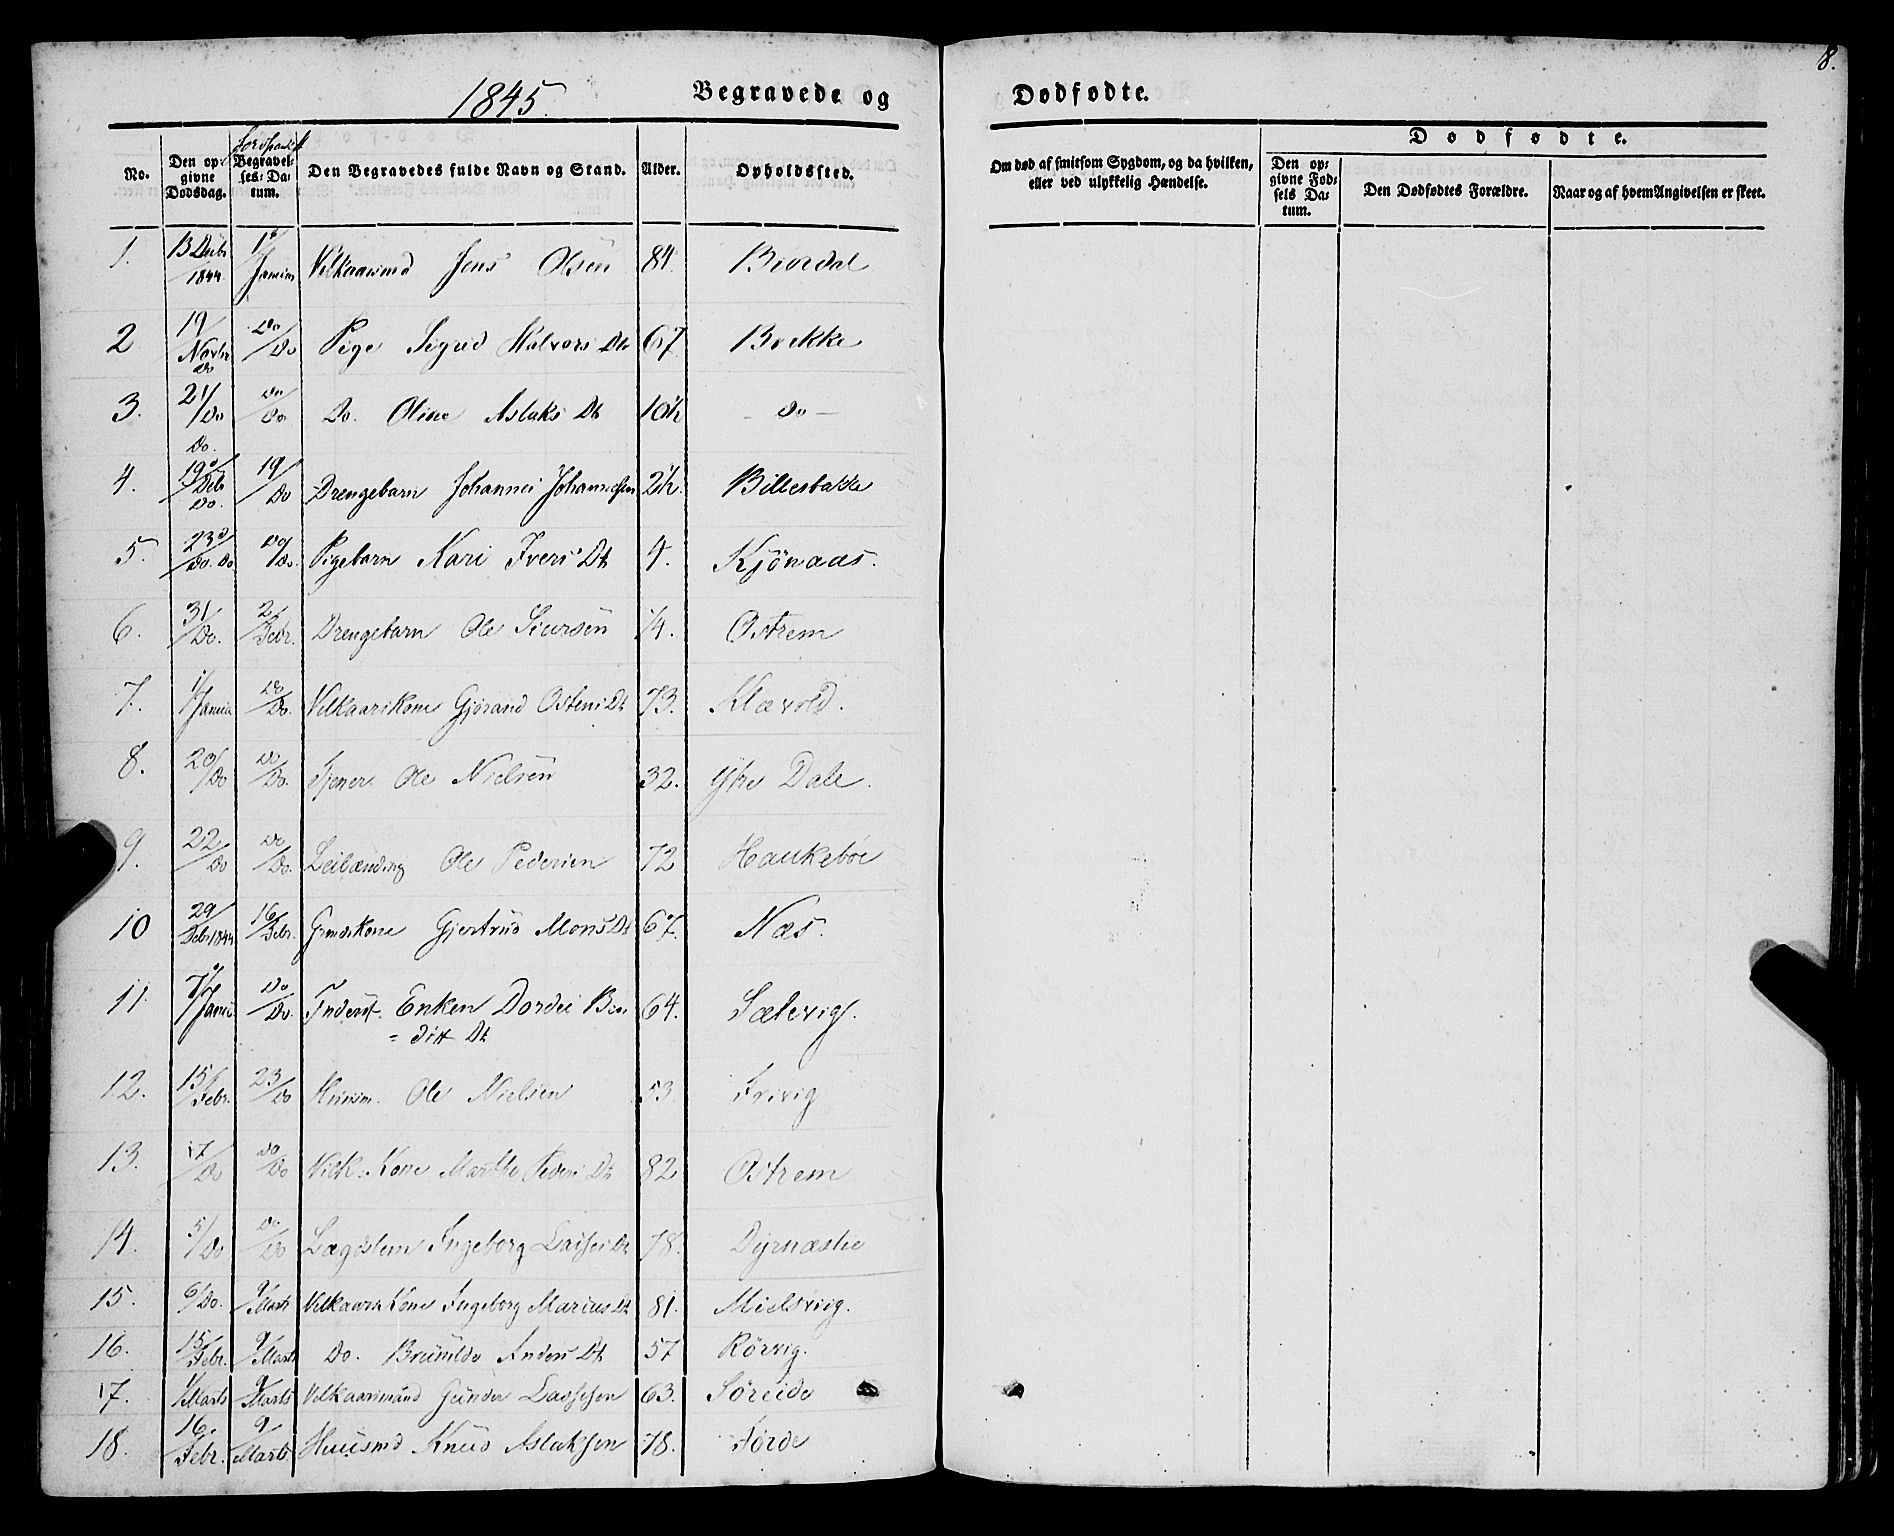 8.
1845. Begravede og Dødfødte.
No. Den opgivne Dødsdag. Begravelses-Datum. Den Begravedes fulde Navn og Stand. Alder. Opholdssted. Om død af smitsom Sygdom, og da hvilken, eller ved ulykkelig Hændelse. Dødfødte. Den opgivne Fødsels Datum. Den Dødfødtes Forældre. Naar og af hvem Angivelsen er skeet.
1. 13 Decbr 1844 Januar Vilkaarsmd Jens Olsen 84. Biordal
2 19/Novbr Do Do/Do Pige Sigrid Halvors Dtr 67 Brekke
3. 21/Do Do. Do/Do Do. Oline Aslaks Dt 10½ – Do –
4. 19/Debr Do. 19/Do Drengebarn Johannes Johannessen 2½. Billesbakke
5. 23/Do. Do Do/Do. Pigebarn Kari Ivers Dt 4. Kjönaas.
6. 31/Do. 2/Febr. Drengebarn Ole Siursen ¼. Ostrem
7. 1/Januar Do/Do. Vilkaarskone Gjørand Ostens Dt 73. Klævold.
8. 20/Do Do/Do. Tjener Ole Nielsen 32. Ytre Dale.
9. 22/Do Do/Do. Leilænding Ole Pedersen 72 Haukebøe
10 29/Febr 1844 16/Febr. Grmdskone Gjertrud Mons Dt 67. Næs.
11. 7/Januar Do/Do. Inderst. Enken Dordei Ben 64. Sælevig.
= ditt Dt
12. 15/Febr. 23/Do Huusm. Ole Nielsen 53. Frivig
13. 17/Do Do/Do Vilk. Kone Marthe Peders Dt 82 Ostrem
14. 5/Do Do/Do Lægdslem Ingeborg Lasses Dt 78. Dyrnæslie
15. 6/Do. 9/Marts Vilkaars Kone Ingeborg Marius Dt 81. Mielsviig.
16. 15/Febr. 9/Marts Do. Brunilde Anders Dt 57 Rörvig.
17. 1/Marts 9/Marts Vilkaarsmand Gunder Lassesen 63. Søreide
18. 16./Febr. 9/Marts Huusmd Knud Aslaksen 78. Førde